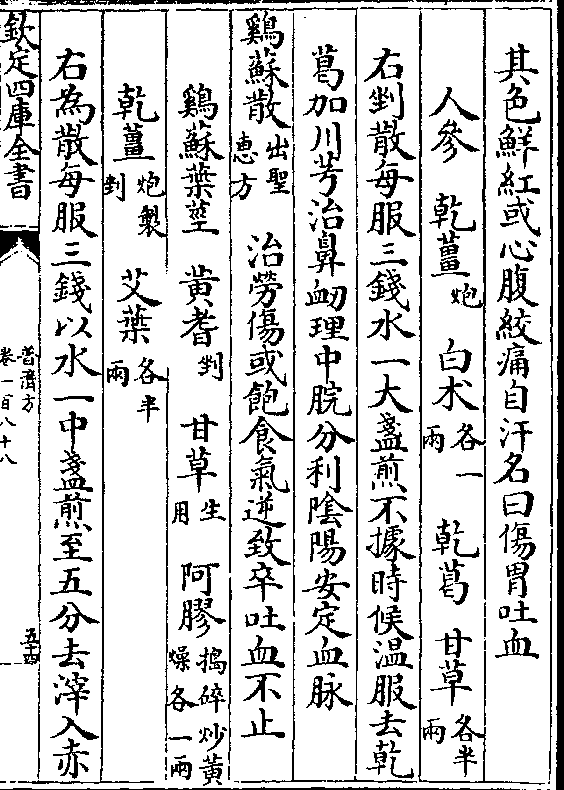 其色鮮紅或心腹絞痛自汗名曰傷胃吐血
人參　乾薑炮　白术各一兩　乾葛　甘草各半兩
右剉散每服三錢水一大盞煎不據時候温服去乾
葛加川芎治鼻衂理中脘分利陰陽安定血脉
鷄蘇散出聖惠方　治勞傷或飽食氣逆致卒吐血不止
鷄蘇葉莖　黄耆剉　甘草生用　阿膠搗碎炒黄燥各一兩
乾薑炮製剉　艾葉各半兩
右為散每服三錢以水一中盞煎至五分去滓入赤
欽定四庫全書
普濟方
卷一百八十八
五十四